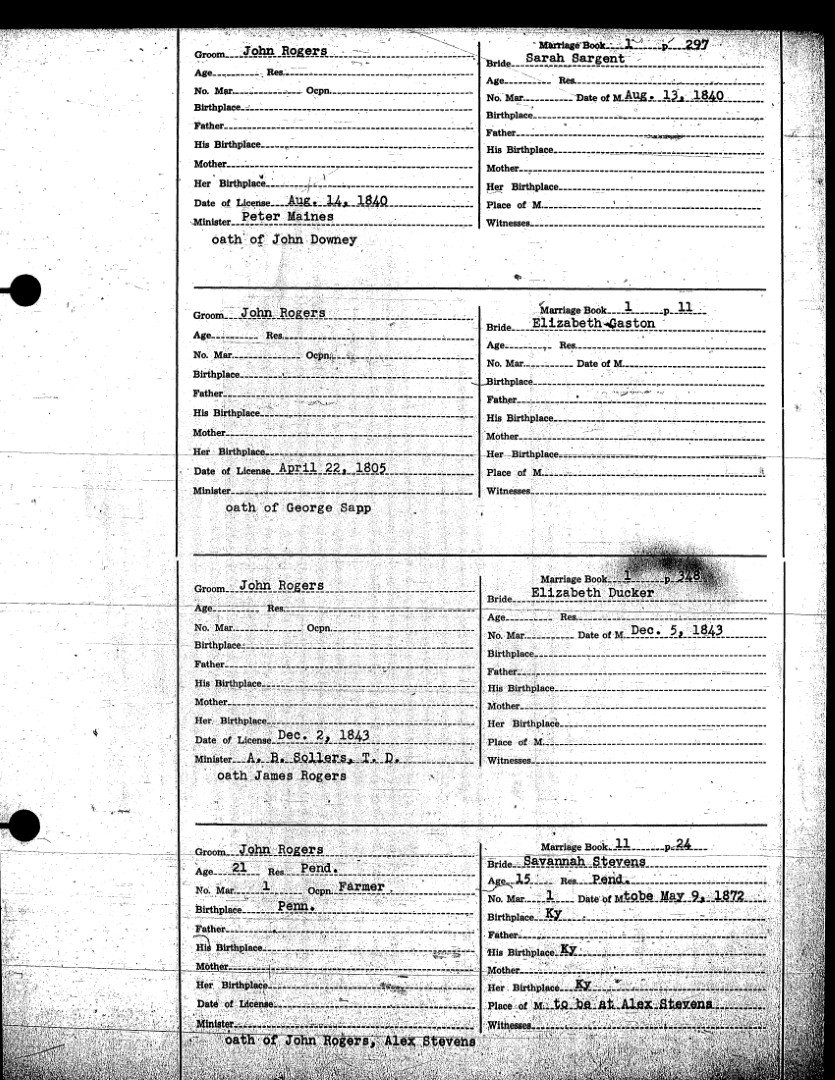 Groom John Rogers
Age Res.
No. Mar. Ocpn.
Birthplace
Father
His Birthplace
Mother
Her Birthplace
Date of License Aug. 14, 1840
Minister Peter Maines
oath of John Downey
Marriage Book 1 p. 297
Bride Sarah Sargent
Age Res.
No. Mar. Date of M. Aug. 13, 1840
Birthplace
Father
His Birthplace
Mother
Her Birthplace
Place of M.
Witnesses
Groom John Rogers
Age Res.
No. Mar. Ocpn.
Birthplace
Father
His Birthplace
Mother
Her Birthplace
Date of License April 22, 1805
Minister
oath of George Sapp
Marriage Book 1 p. 11
Bride Elizabeth Gaston
Age Res.
No. Mar. Date of M.
Birthplace
Father
His Birthplace
Mother
Her Birthplace
Place of M.
Witnesses
Groom John Rogers
Age Res.
No. Mar. Ocpn.
Birthplace
Father
His Birthplace
Mother
Her Birthplace
Date of License Dec. 2, 1843
Minister A. B. Sollers, T. D.
oath James Rogers
Marriage Book 1 p. 348
Bride Elizabeth Ducker
Age Res.
No. Mar. Date of M. Dec. 5, 1843
Birthplace
Father
His Birthplace
Mother
Her Birthplace
Place of M.
Witnesses
Groom John Rogers
Age 21 Res. Pend.
No. Mar. 1 Ocpn. Farmer
Birthplace Penn.
Father
His Birthplace
Mother
Her Birthplace
Date of License
Minister
oath of John Rogers, Alex Stevens
Marriage Book 11 p. 24
Bride Savannah Stevens
Age 15 Res. Pend.
No. Mar. 1 Date of M. tobe May 9, 1872
Birthplace Ky
Father
His Birthplace Ky
Mother
Her Birthplace Ky
Place of M. to be at Alex Stevens
Witnesses